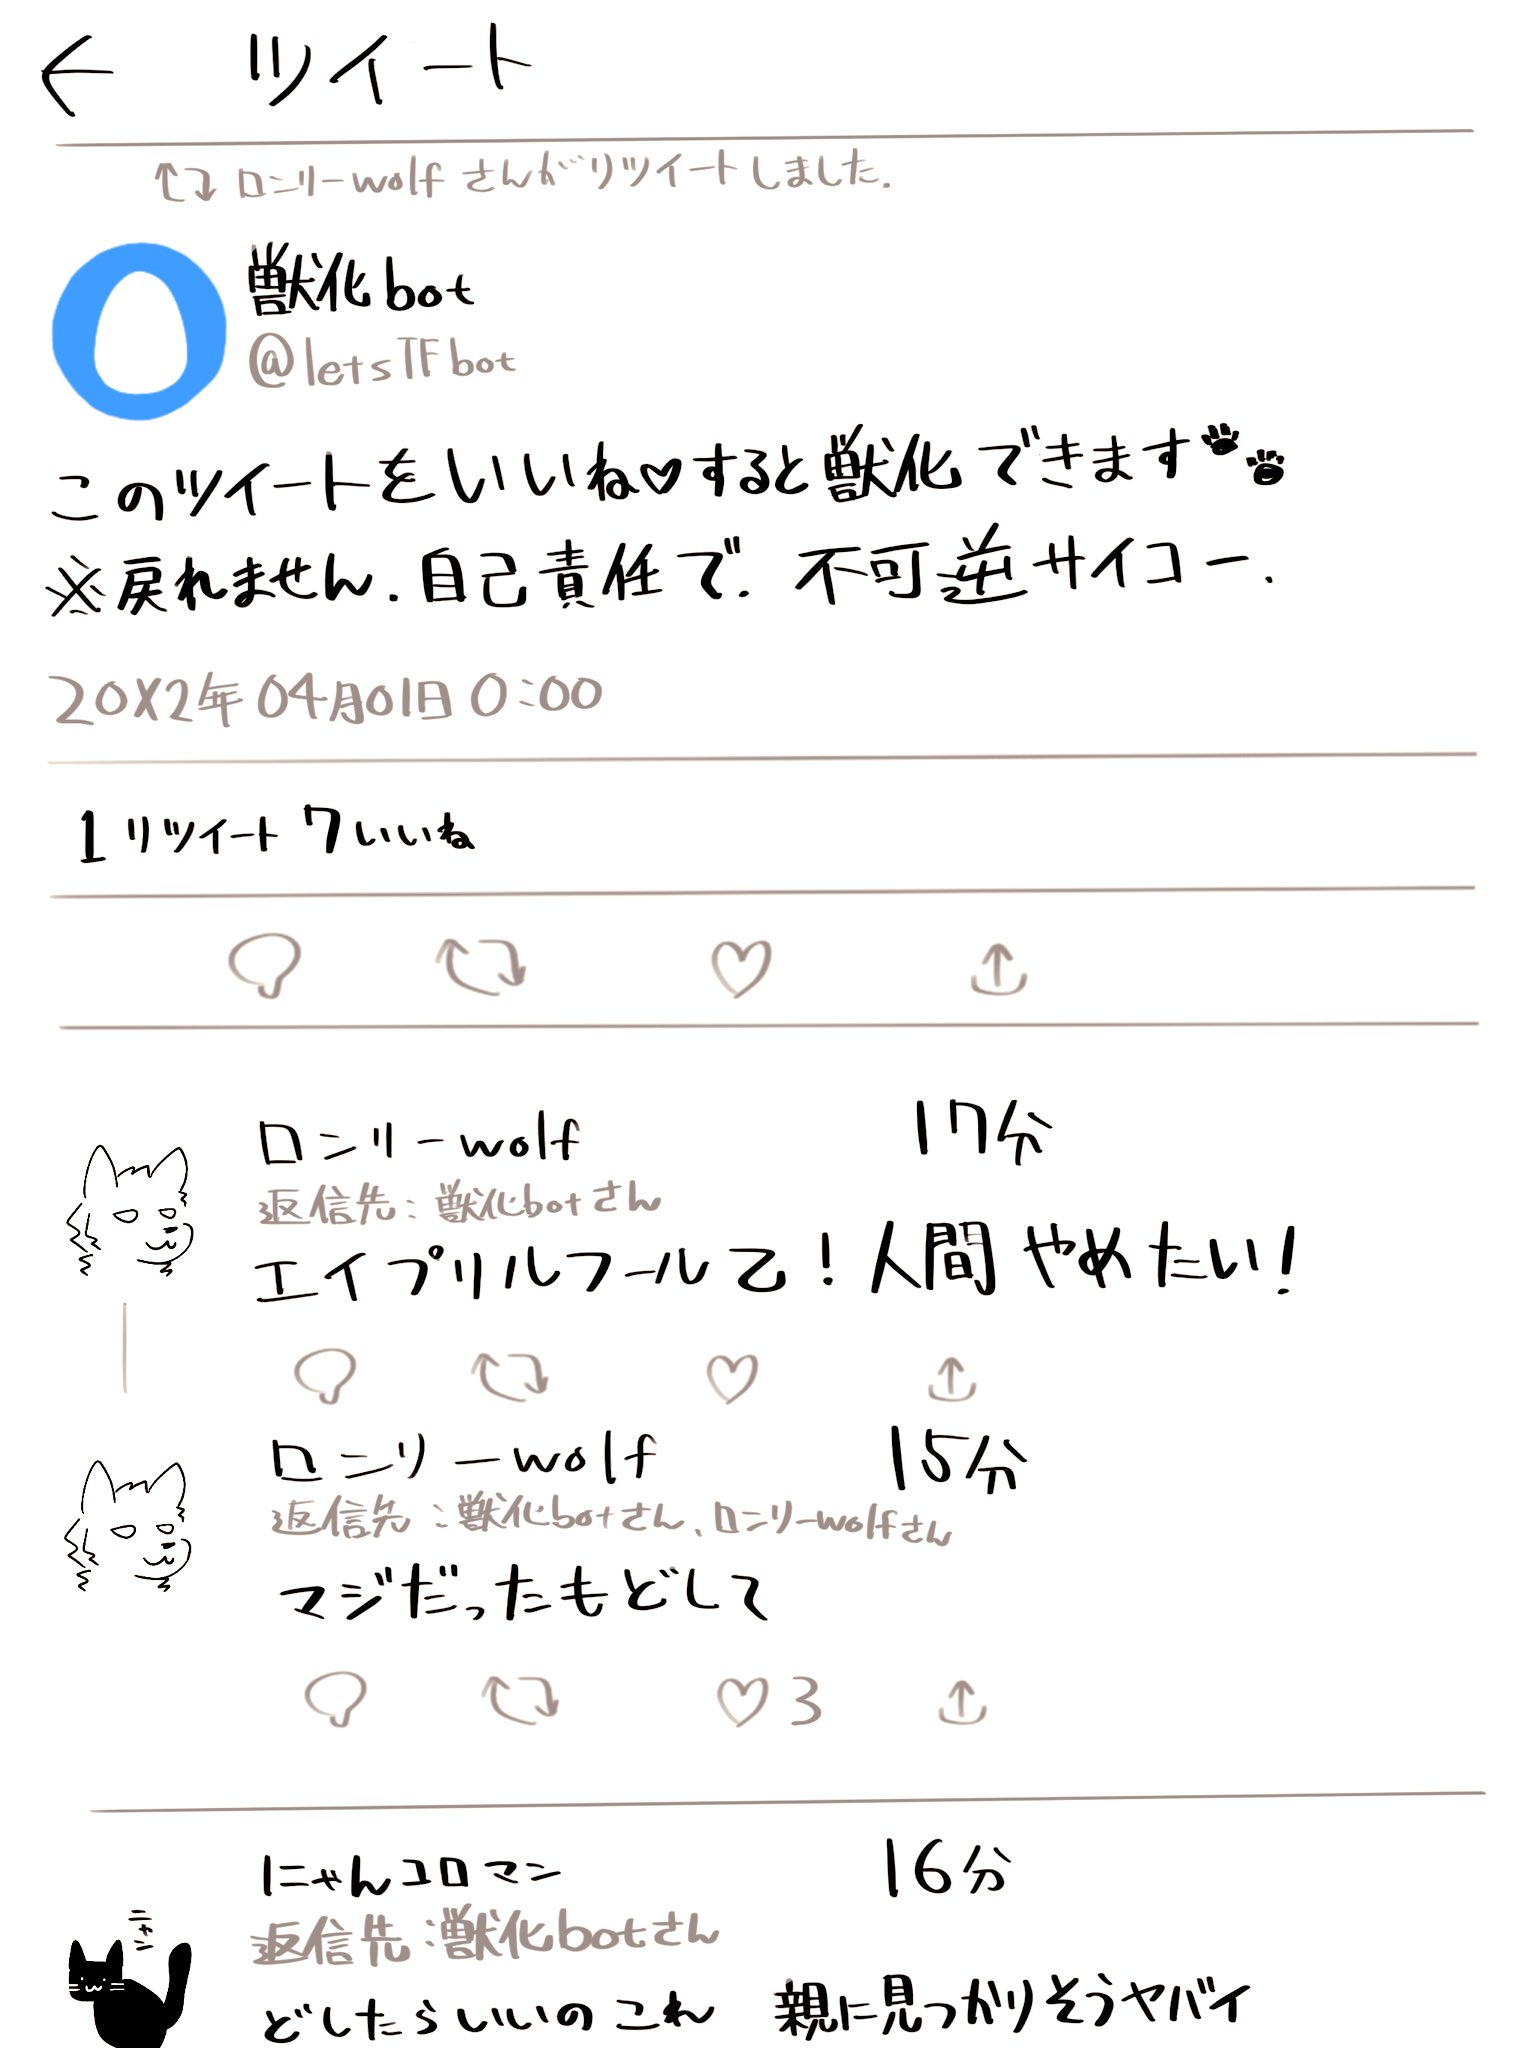 ← ツイート
ロンリーwolf さんがリツイートしました.
獣化bot
@letsTFbot
このツイートをいいね♡すると獣化できます🐾
※戻れません.自己責任で.不可逆サイコー.
20X2年04月01日 0:00
1 リツイート 7 いいね
ロンリーwolf 17分
返信先:獣化botさん
エイプリルフール乙!人間やめたい!
ロンリーwolf 15分
返信先:獣化botさん、ロンリーwolfさん
マジだったもどして
3
にゃんコロマン 16分
返信先:獣化botさん
ニャン
どしたらいいのこれ 親に見つかりそうヤバイ